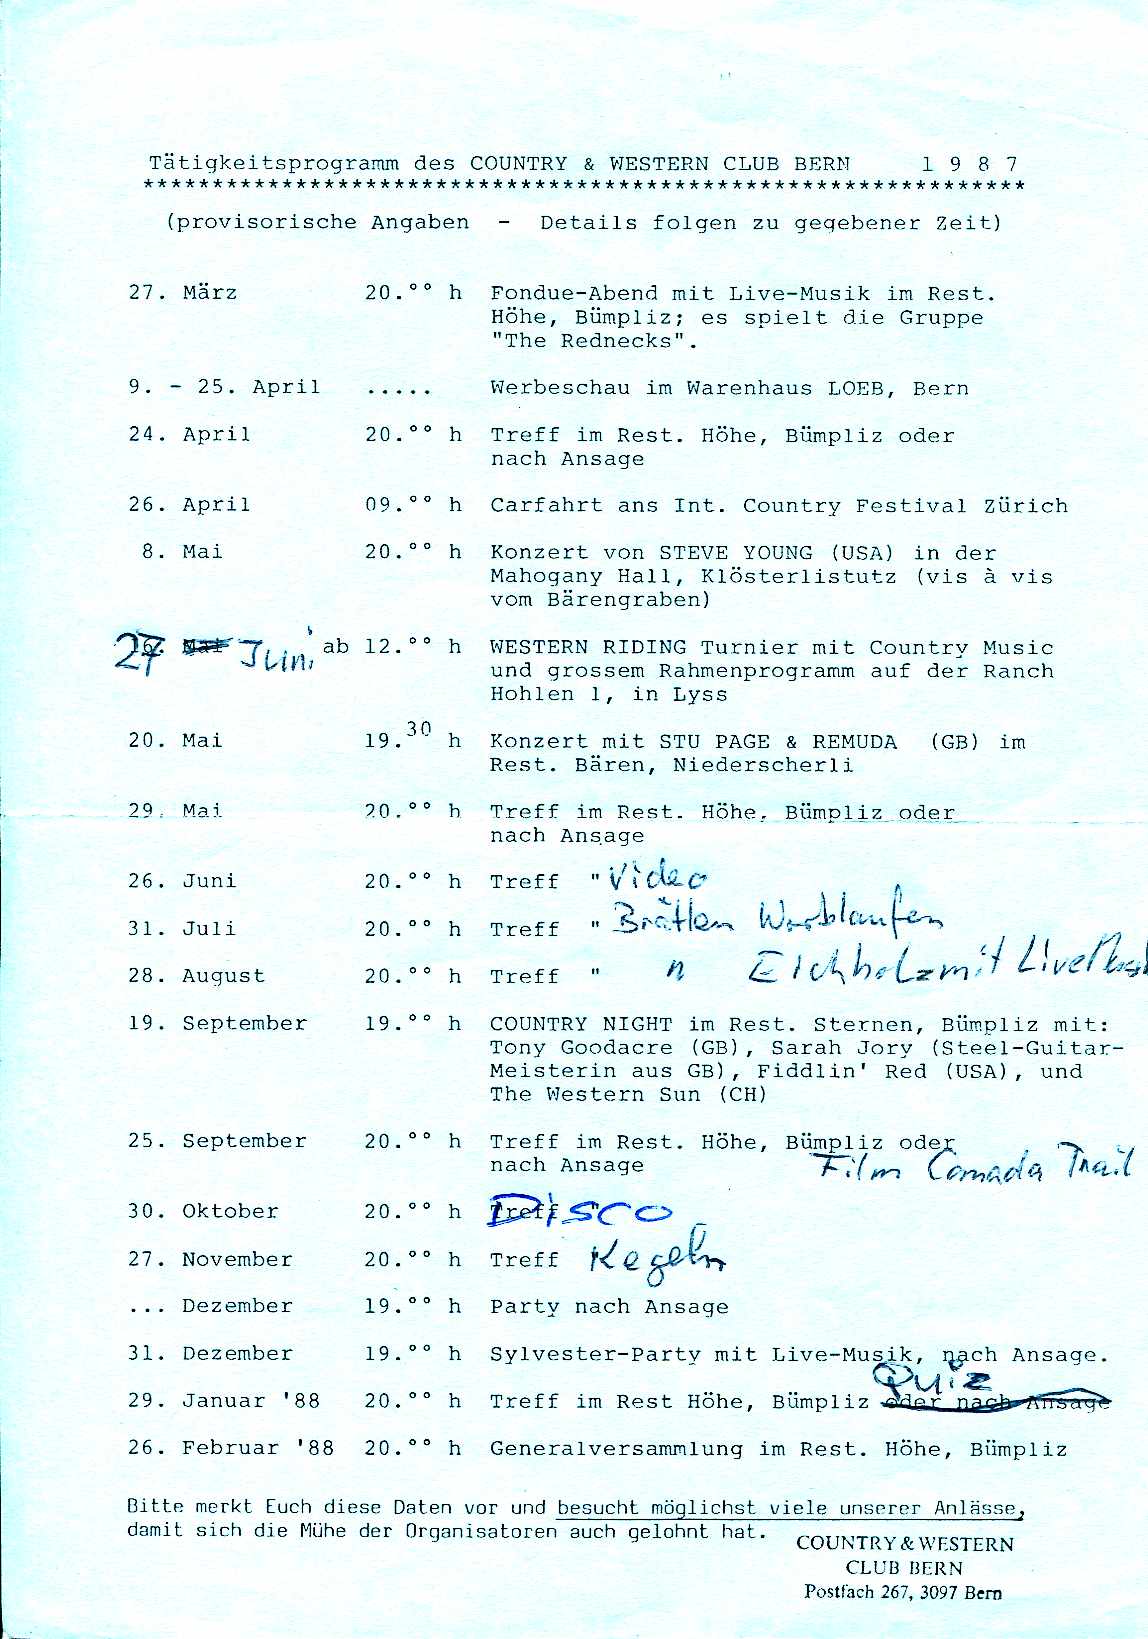 Tätigkeitsprogramm des COUNTRY & WESTERN CLUB BERN 1 9 8 7
***************************************************************
(provisorische Angaben - Details folgen zu gegebener Zeit)
27. März 20.°° h Fondue-Abend mit Live-Musik im Rest.
Höhe, Bümpliz; es spielt die Gruppe
"The Rednecks".
9. - 25. April ..... Werbeschau im Warenhaus LOEB, Bern
24. April 20.°° h Treff im Rest. Höhe, Bümpliz oder
nach Ansage
26. April 09.°° h Carfahrt ans Int. Country Festival Zürich
8. Mai 20.°° h Konzert von STEVE YOUNG (USA) in der
Mahogany Hall, Klösterlistutz (vis à vis
vom Bärengraben)
27 Mai Juni ab 12.°° h WESTERN RIDING Turnier mit Country Music
und grossem Rahmenprogramm auf der Ranch
Hohlen 1, in Lyss
20. Mai 19.30 h Konzert mit STU PAGE & REMUDA (GB) im
Rest. Bären, Niederscherli
29. Mai 20.°° h Treff im Rest. Höhe, Bümpliz oder
nach Ansage
26. Juni 20.°° h Treff " Video
31. Juli 20.°° h Treff " Brätlen Worblaufen
28. August 20.°° h Treff " " Eichholz mit Live
19. September 19.°° h COUNTRY NIGHT im Rest. Sternen, Bümpliz mit:
Tony Goodacre (GB), Sarah Jory (Steel-Guitar-
Meisterin aus GB), Fiddlin' Red (USA), und
The Western Sun (CH)
25. September 20.°° h Treff im Rest. Höhe, Bümpliz oder
nach Ansage Film Canada Trail
30. Oktober 20.°° h Treff " Disco
27. November 20.°° h Treff Kegeln
... Dezember 19.°° h Party nach Ansage
31. Dezember 19.°° h Sylvester-Party mit Live-Musik, nach Ansage.
Quiz
29. Januar '88 20.°° h Treff im Rest Höhe, Bümpliz oder nach Ansage
26. Februar '88 20.°° h Generalversammlung im Rest. Höhe, Bümpliz
Bitte merkt Euch diese Daten vor und besucht möglichst viele unserer Anlässe,
damit sich die Mühe der Organisatoren auch gelohnt hat.
COUNTRY & WESTERN
CLUB BERN
Postfach 267, 3097 Bern